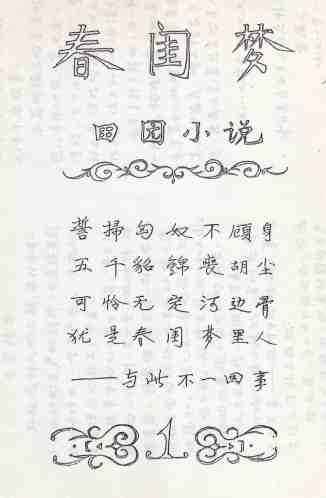 春闺梦
田园小说
誓掃匈奴不顾身
五千貂錦喪胡尘
可怜无定河边骨
犹是春闺梦里人
——与此不一回事
1